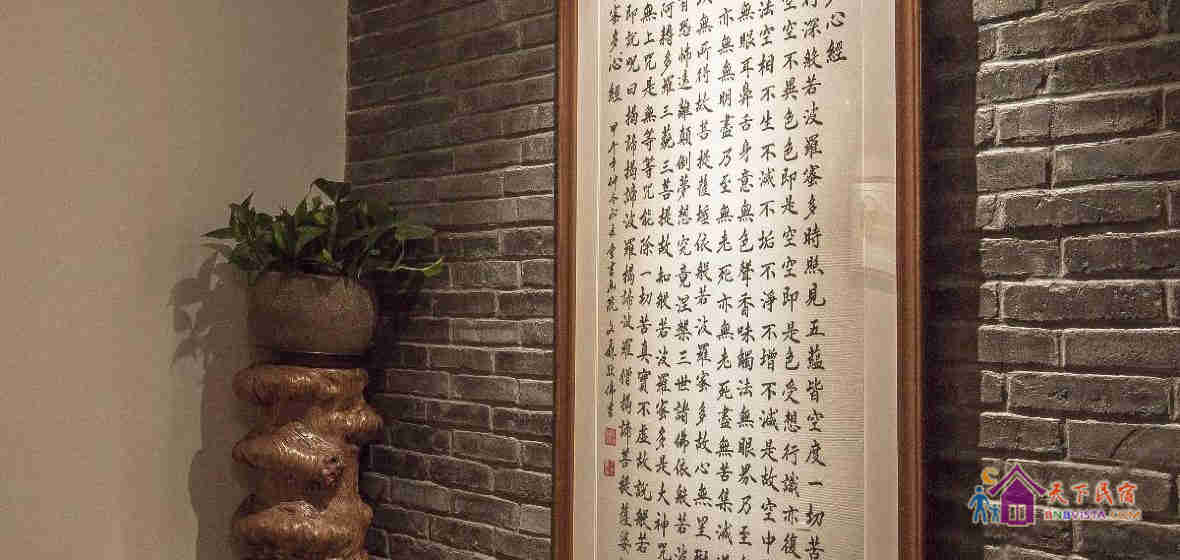 心經
行深般若波羅蜜多時照見五蘊皆空度一切苦
空空不異色色即是空空即是色受想行識亦復
法空相不生不滅不垢不淨不增不減是故空中
無眼耳鼻舌身意無色聲香味觸法無眼界乃至
亦無無明盡乃至無老死亦無老死盡無苦集滅道
以無所得故菩提薩埵依般若波羅蜜多故心無罣
有恐怖遠離顛倒夢想究竟涅槃三世諸佛依般若波
阿耨多羅三藐三菩提故知般若波羅蜜多是大神咒
無上咒是無等等咒能除一切苦真實不虛故說般若
即說咒曰揭諦揭諦波羅揭諦波羅僧揭諦菩提薩婆
蜜多心經 甲午年
天下民宿
BNBVISTA.COM